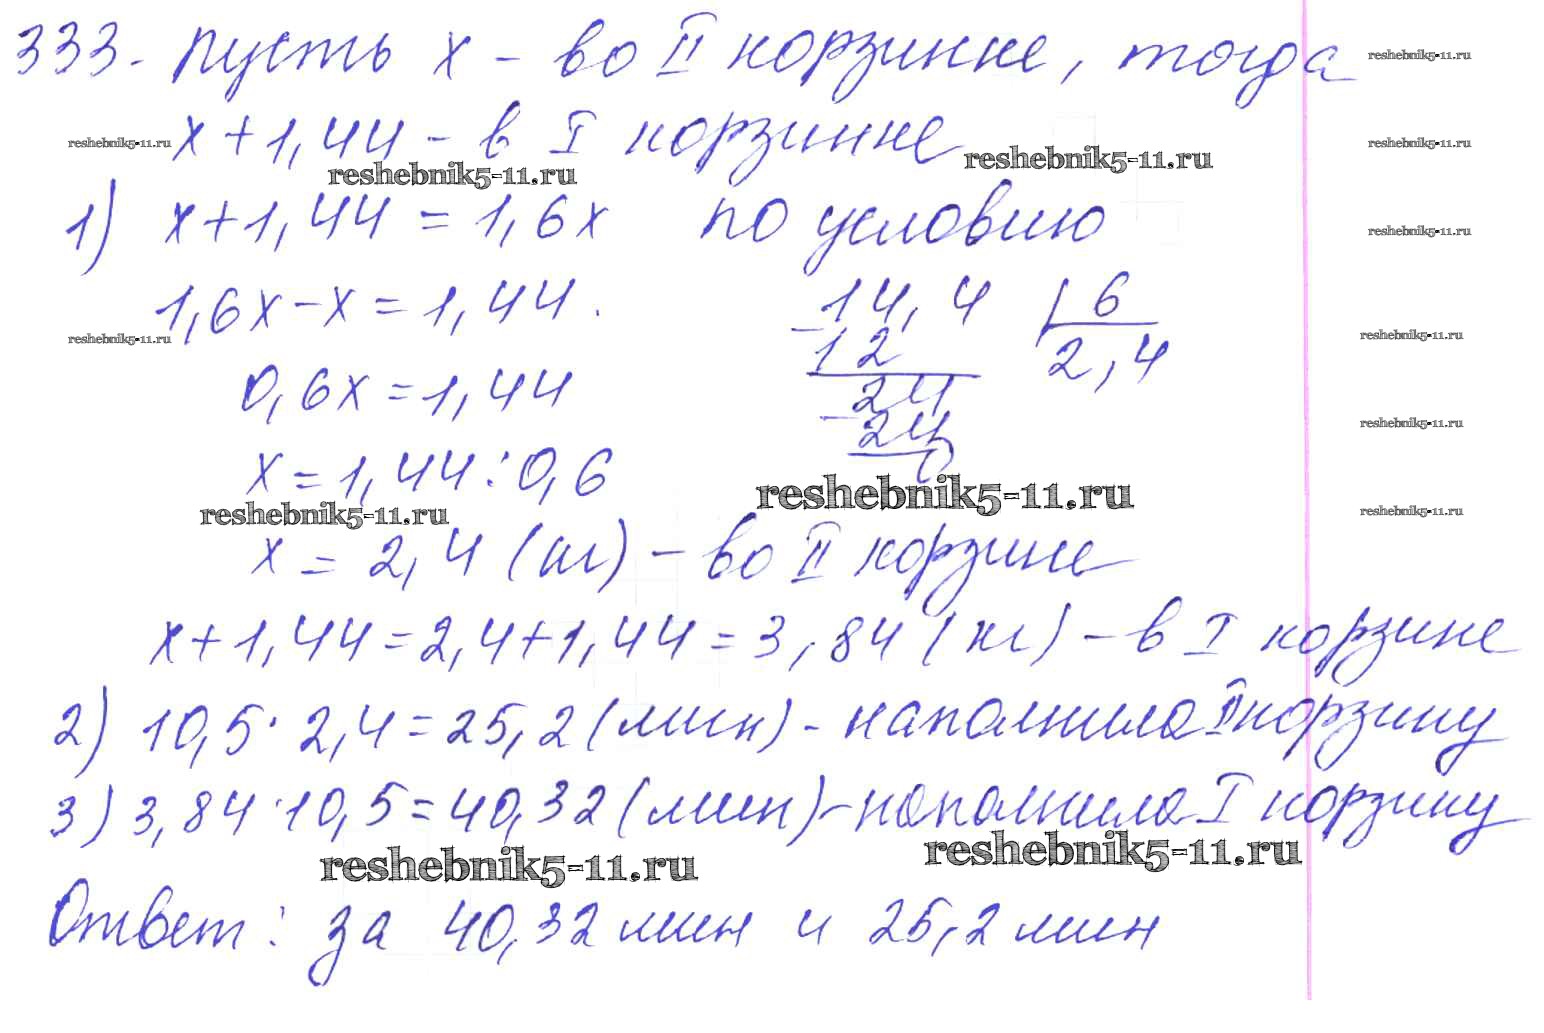 333. Пусть x - во II корзинке, тогда
reshebnik5-11.ru
x + 1,44 - в I корзинке
reshebnik5-11.ru
reshebnik5-11.ru
reshebnik5-11.ru
reshebnik5-11.ru
1) x + 1,44 = 1,6x по условию
reshebnik5-11.ru
1,6x - x = 1,44.
14,4 6
reshebnik5-11.ru
- 12 2,4
reshebnik5-11.ru
0,6x = 1,44
24
- 24
reshebnik5-11.ru
0
x = 1,44 : 0,6
reshebnik5-11.ru
reshebnik5-11.ru
reshebnik5-11.ru
x = 2,4 (кг) - во II корзине
x + 1,44 = 2,4 + 1,44 = 3,84 (кг) - в I корзине
2) 10,5 · 2,4 = 25,2 (мин) - наполнила II корзину
3) 3,84 · 10,5 = 40,32 (мин) - наполнила I корзину
reshebnik5-11.ru
reshebnik5-11.ru
Ответ: за 40,32 мин и 25,2 мин